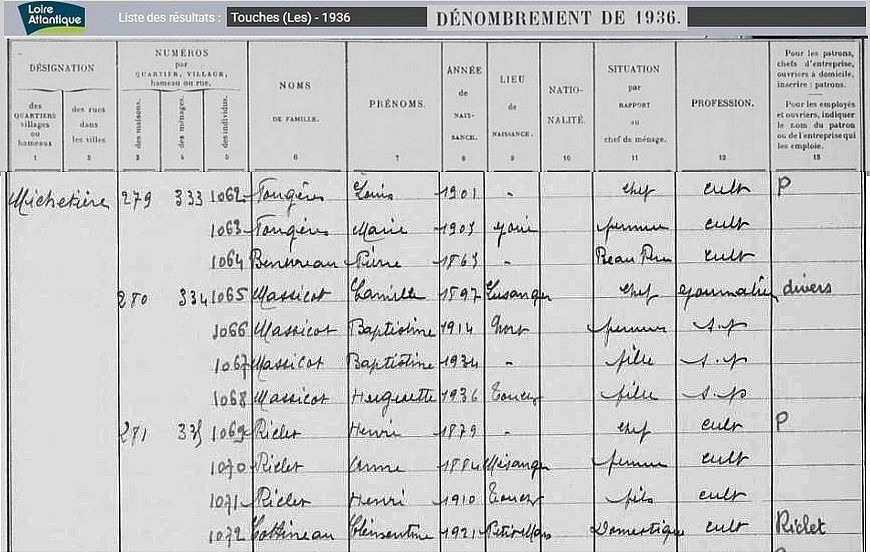 Loire Atlantique
Liste des résultats : Touches (Les) - 1936
DÉNOMBREMENT DE 1936.
DÉSIGNATION
des QUARTIERS villages ou hameaux
1
des rues dans les villes
2
NUMÉROS par QUARTIER, VILLAGE, hameau ou rue.
des maisons.
3
des ménages.
4
des individus.
5
NOMS DE FAMILLE.
6
PRÉNOMS.
7
ANNÉE de NAISSANCE.
8
LIEU de NAISSANCE.
9
NATIONALITÉ.
10
SITUATION par RAPPORT au chef de ménage.
11
PROFESSION.
12
Pour les patrons, chefs d'entreprise, ouvriers à domicile, inscrire : patrons.
Pour les employés et ouvriers, indiquer le nom du patron ou de l'entreprise qui les emploie.
13
Michetière 279 333 1062 Fougères Louis 1901 - chef cult P
1063 Fougères Marie 1903 femme cult
1064 Pierre 1863 - Beau Père cult
280 334 1065 Massicot Camille 1897 Lusanger chef journalier divers
1066 Massicot Baptistine 1914 Nort femme s.p
1067 Massicot Baptistine 1934 - fille s.p
1068 Massicot Huguette 1936 Touches fille s.p
281 335 1069 Riclet Henri 1879 - chef cult P
1070 Riclet Anne 1884 Mésanger femme cult
1071 Riclet Henri 1910 Touches fils cult
1072 Cottineau Clémentine 1921 Petit Mars Domestique cult Riclet